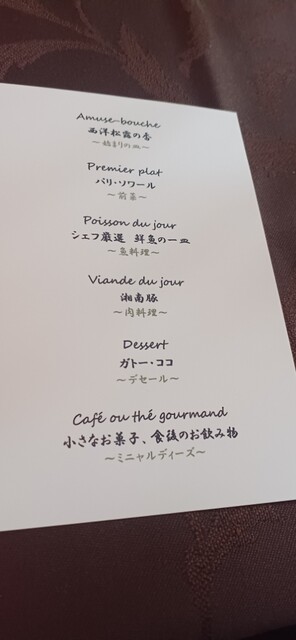 Amuse-bouche
西洋松露の香
～始まりの皿～
Premier plat
パリ・ソワール
～前菜～
Poisson du jour
シェフ厳選 鮮魚の一皿
～魚料理～
Viande du jour
湘南豚
～肉料理～
Dessert
ガトー・ココ
～デセール～
Café ou thé gourmand
小さなお菓子、食後のお飲み物
～ミニャルディーズ～